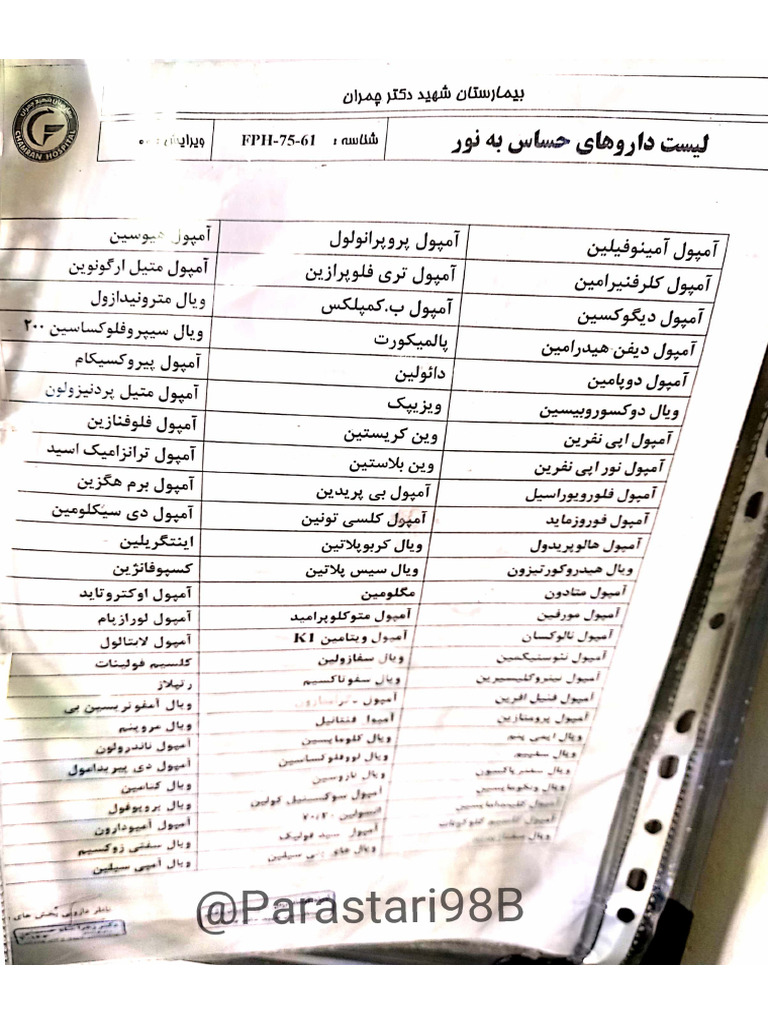 بیمارستان شهید دکتر چمران
CHAMRAN HOSPITAL
لیست داروهای حساس به نور شناسه : FPH-75-61 ویرایش :
آمپول آمینوفیلین آمپول پروپرانولول آمپول هیوسین
آمپول کلرفنیرامین آمپول تری فلوپرازین آمپول متیل ارگونوین
آمپول دیگوکسین آمپول ب.کمپلکس ویال مترونیدازول
آمپول دیفن هیدرامین پالمیکورت ویال سیپروفلوکساسین ۲۰۰
آمپول دوپامین دائولین آمپول پیروکسیکام
ویال دوکسوروبیسین ویزیپک آمپول متیل پردنیزولون
آمپول اپی نفرین وین کریستین آمپول فلوفنازین
آمپول نور اپی نفرین وین بلاستین آمپول ترانزامیک اسید
آمپول فلورویوراسیل آمپول بی پریدین آمپول برم هگزین
آمپول فوروزماید آمپول کلسی تونین آمپول دی سیکلومین
آمپول هالوپریدول ویال کربوپلاتین اینتگریلین
ویال هیدروکورتیزون ویال سیس پلاتین کسپوفانژین
آمپول متادون مگلومین آمپول اوکتروتاید
آمپول مورفین آمپول متوکلوپرامید آمپول لورازپام
آمپول نالوکسان آمپول ویتامین K1 آمپول لابتالول
آمپول نئوستیگمین ویال سفازولین کلسیم فولینات
آمپول نیتروگلیسیرین ویال سفوتاکسیم رتپلاز
آمپول فنیل افرین آمپول ویال آمفوتریسین بی
آمپول پرومتازین آمپول فنتانیل ویال مروپنم
ویال ایمی پنم ویال کلومایسین آمپول ناندرولون
ویال سفپیم ویال لووفلوکساسین آمپول دی پیریدامول
ویال سفتریاکسون ویال تازوسین ویال کتامین
ویال ونکومایسین آمپول سوکسنیل کولین ویال پروپوفول
آمپول کلیندامایسین انسولین ۷۰/۳۰ آمپول آمیودارون
آمپول کلسیم گلوکونات آمپول اسید فولیک ویال سفتی زوکسیم
ویال سفتازیدیم ویال پنی سیلین ویال آمپی سیلین
ناظر دارویی بخش های
@Parastari98B